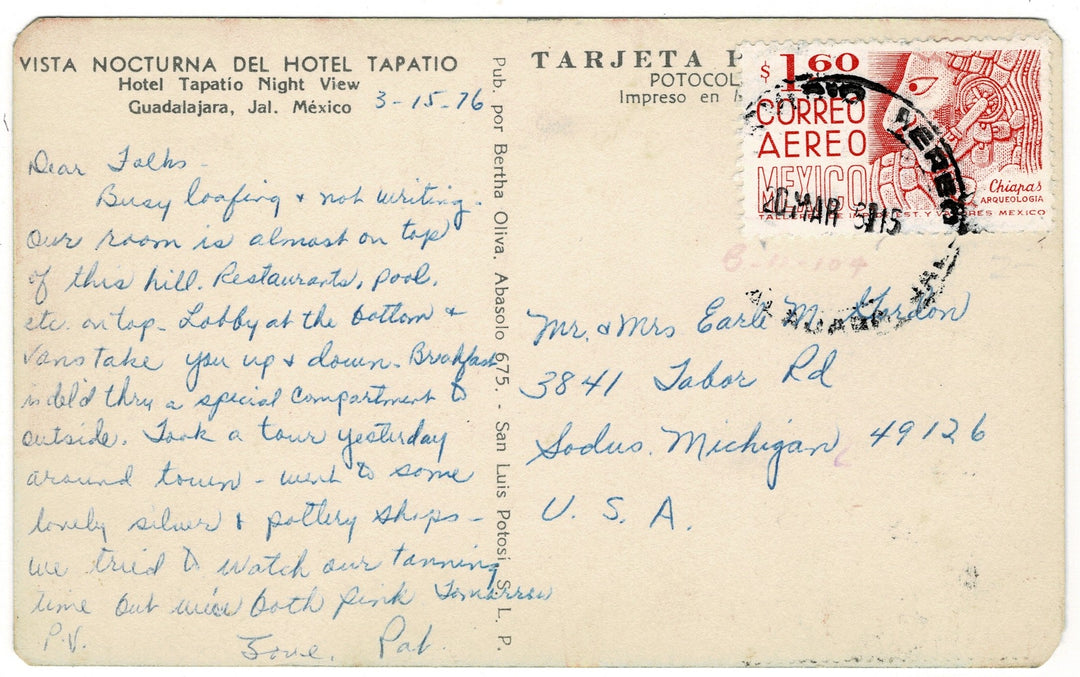 VISTA NOCTURNA DEL HOTEL TAPATIO
Hotel Tapatio Night View
Guadalajara, Jal. México
3-15-76
Dear Folks -
Busy loafing & not writing.
Our room is almost on top
of this hill. Restaurants, pool,
etc. on top. Lobby at the bottom &
vans take you up & down. Breakfast
is del'd thru a special compartment to
outside. Took a tour yesterday
around town - went to some
lovely silver & pottery shops -
we tried to watch our tanning
time but we're both pink Tomorrow
P.V.
Love, Pat
Pub. por Bertha Oliva. Abasolo 675. - San Luis Potosi, S. L. P.
TARJETA P
POTOCOL
Impreso en
$1.60
CORREO
AEREO
MEXICO
Chiapas
ARQUEOLOGIA
20 MAR
15
AEREO
Mr. & Mrs Earle M. Gordon
3841 Tabor Rd
Sodus, Michigan 49126
U. S. A.